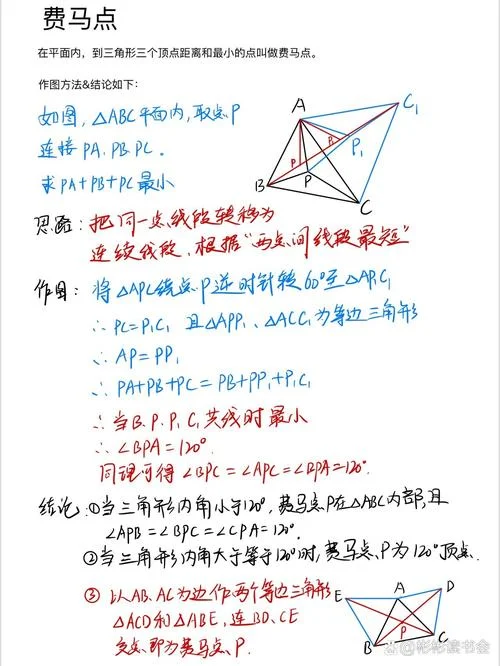 费马点
在平面内，到三角形三个顶点距离和最小的点叫做费马点。
作图方法&结论如下：
如图，△ABC平面内，取点P
连接PA、PB、PC。
求PA+PB+PC最小
A
C₁
P₁
P
P
P₁
B
C
思路：把同一点线段转移为
连续线段，根据“两点间线段最短”
作图：将△APC绕点P逆时针转60°至△AP₁C₁
∴PC=P₁C₁ 且△APP₁、△ACC₁为等边三角形
∴AP=PP₁
∴PA+PB+PC=PB+PP₁+P₁C₁
∴当B、P、P₁、C₁共线时最小
∴∠BPA=120°
同理可得∠BPC=∠APC=∠BPA=120°.
结论：①当三角形内角小于120°，费马点P在△ABC内部，且
∠APB=∠BPC=∠CPA=120°.
②当三角形内角大于等于120°时，费马点P为120°顶点.
③以AB、AC为边作两个等边三角形
△ACD和△ABE，连BD、CE
交点即为费马点P.
E
A
D
P
B
C
彬彬读书会